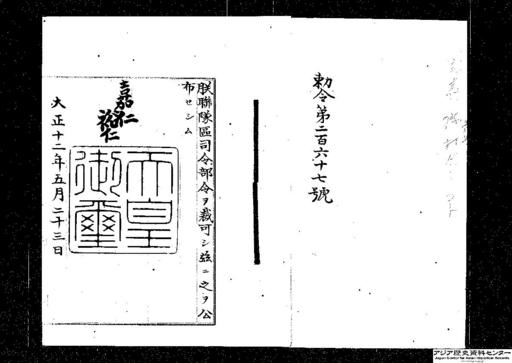 勅令第二百六十七號
朕聯隊區司令部令ヲ裁可シ茲ニ之ヲ公
布セシム
嘉仁
裕仁
天皇
御璽
大正十二年五月二十三日
アジア歴史資料センター
Japan Center for Asian Historical Records